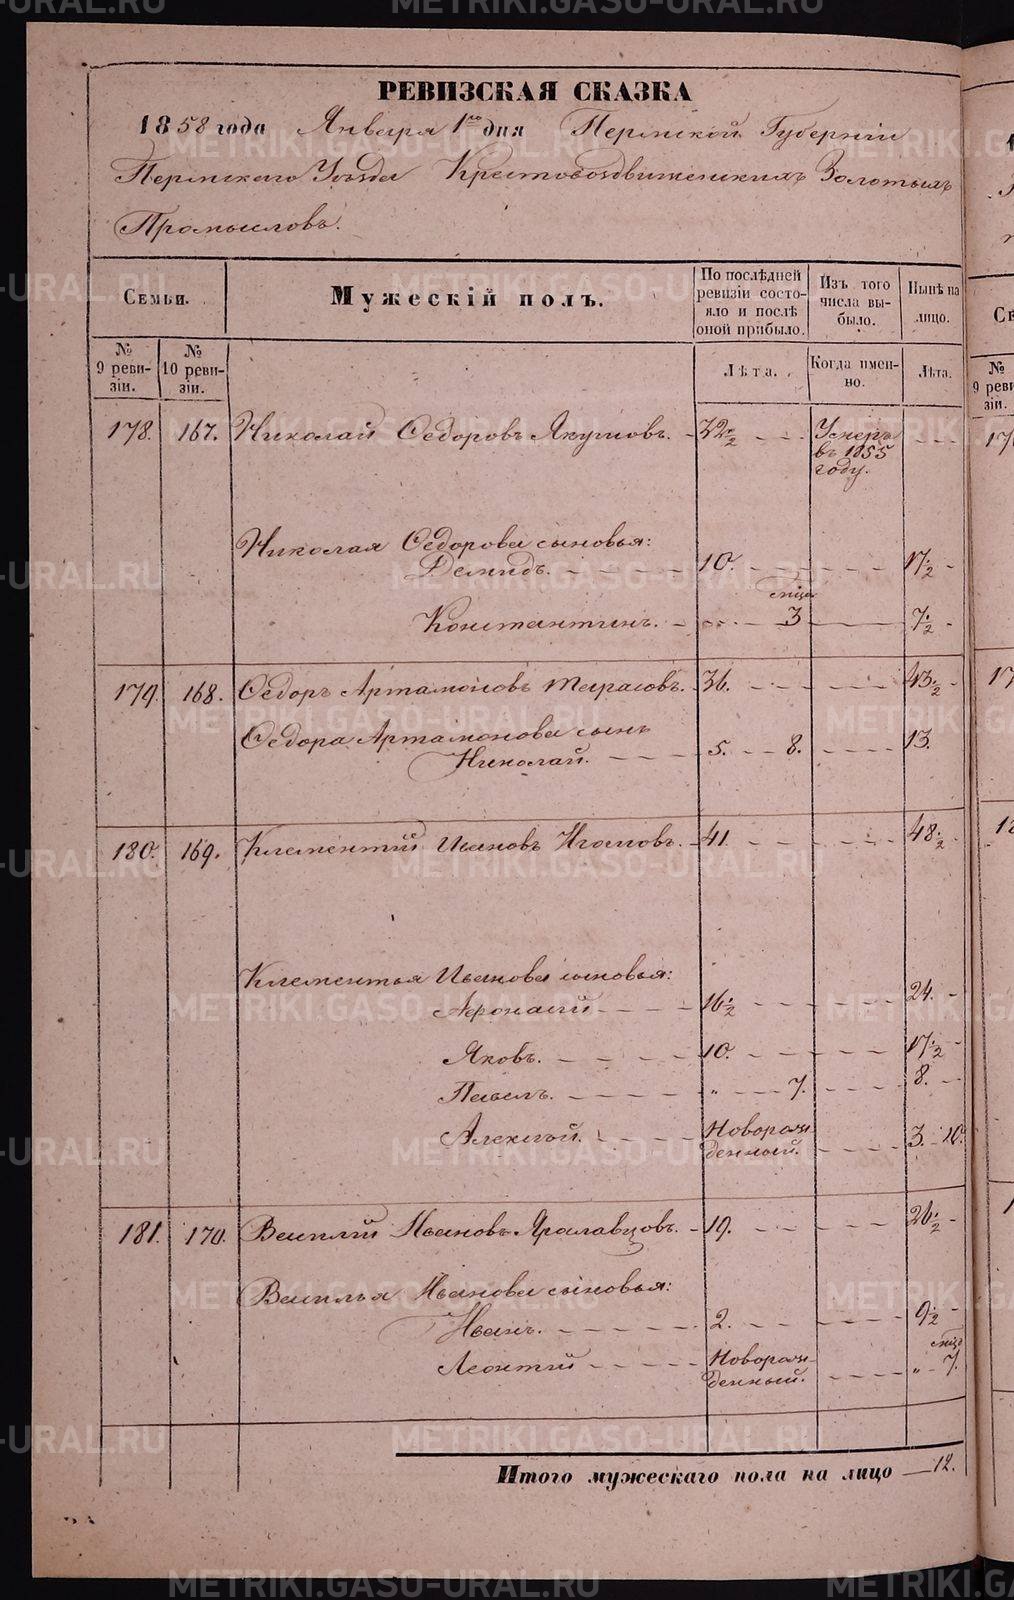 METRIKI.GASO-URAL.RU
РЕВИЗСКАЯ СКАЗКА
1858 года Января 1го дня Пермской Губерніи
Пермскаго Уѣзда Крестовоздвиженскихъ Золотыхъ
Промысловъ.
Семьи.
Мужескій полъ.
По послѣдней ревизіи состояло и послѣ оной прибыло.
Изъ того числа выбыло.
Нынѣ на лицо.
№ 9 ревизіи.
№ 10 ревизіи.
Лѣта.
Когда именно.
Лѣта.
178. 167. Николай Ѳедоровъ Якушовъ. 32 1/2 Умеръ въ 1855 году.
Николая Ѳедорова сыновья:
Демидъ. 10. 17 1/2
Константинъ. „ мѣся 3 7 1/2
179. 168. Ѳедоръ Артамоновъ Тарасовъ. 36. 43 1/2
Ѳедора Артамонова сынъ
Николай. 5. 8. 13.
180. 169. Клементій Ивановъ 41 48 1/2
Клементья Иванова сыновья:
Афонасій 16 1/2 24.
Яковъ. 10. 17 1/2
Павелъ. „ 7. 8.
Алексѣй. Новорожденный. 3. 10.
181. 170. Василій Ивановъ Ярославцовъ. 19. 26 1/2
Василья Иванова сыновья:
Иванъ. 2. 9 1/2
Леонтій Новорожденный. „ мѣся 7.
Итого мужескаго пола на лицо 12.